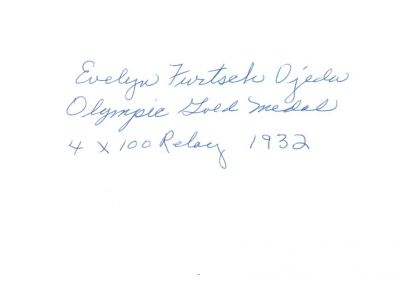 Evelyn Furtsch Ojeda
Olympic Gold Medal
4 x 100 Relay 1932